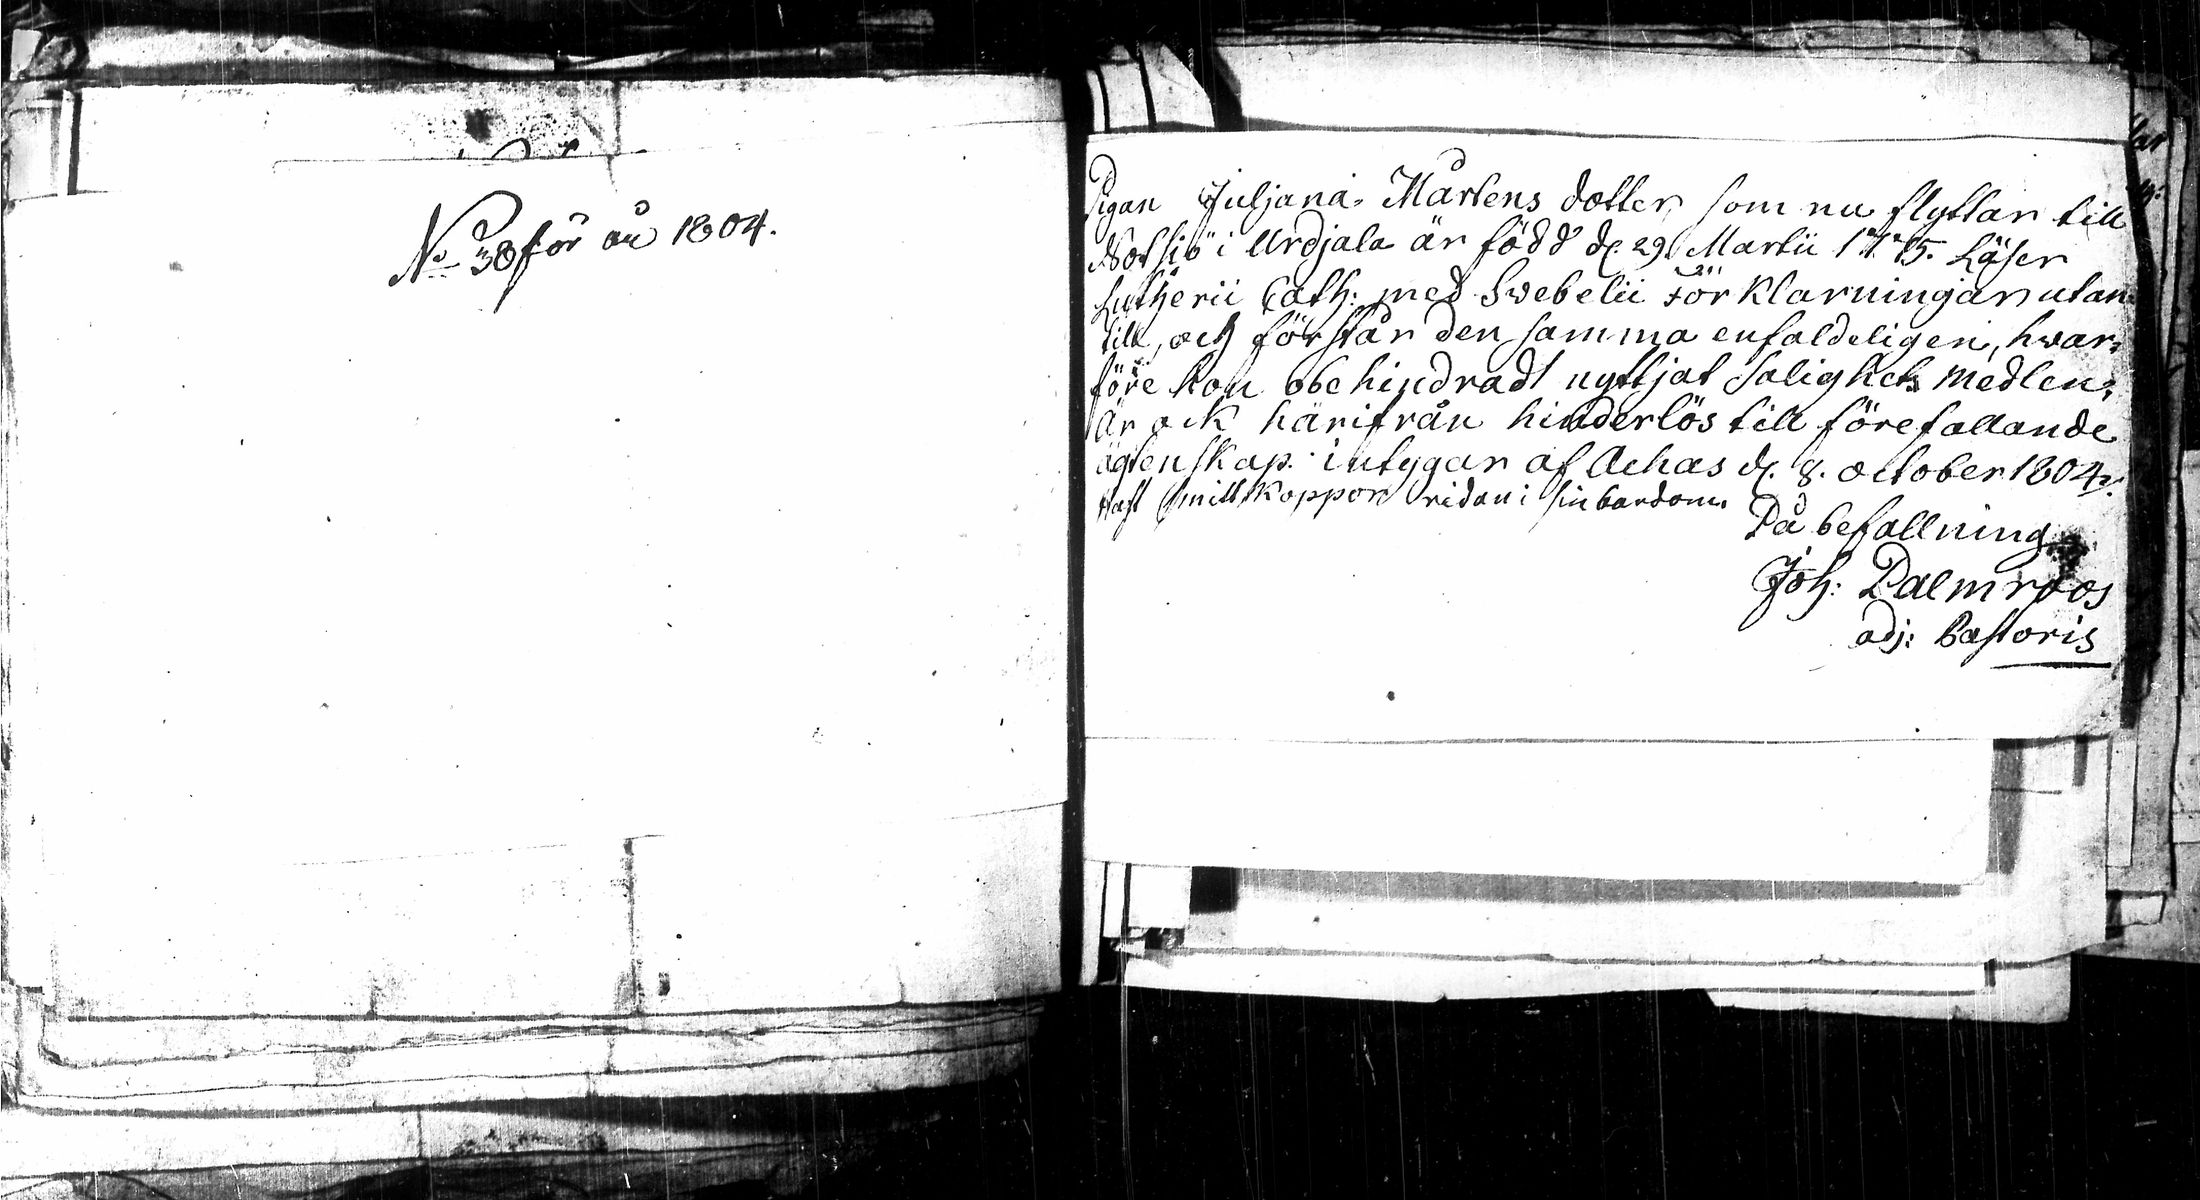 No 38 för år 1804.
Pigan Juljana Mårtens dotter som nu flyttar till
Notsiö i Urdjala är född d. 29 Martii 1775. Läser
Lutherii Cath: med Svebelii Förklarningar utan
till, och förstår den samma enfaldeligen, hwar¬
före hon obehindradt nyttjat Salighets medlen,
är ock härifrån hinderlös till förefallande
ägtenskap. intygar af Achas d. 8. october 1804.
Haft Smittkoppor ridan i sin bardom.
På befallning
Joh: Palmroos
adj: Pastoris